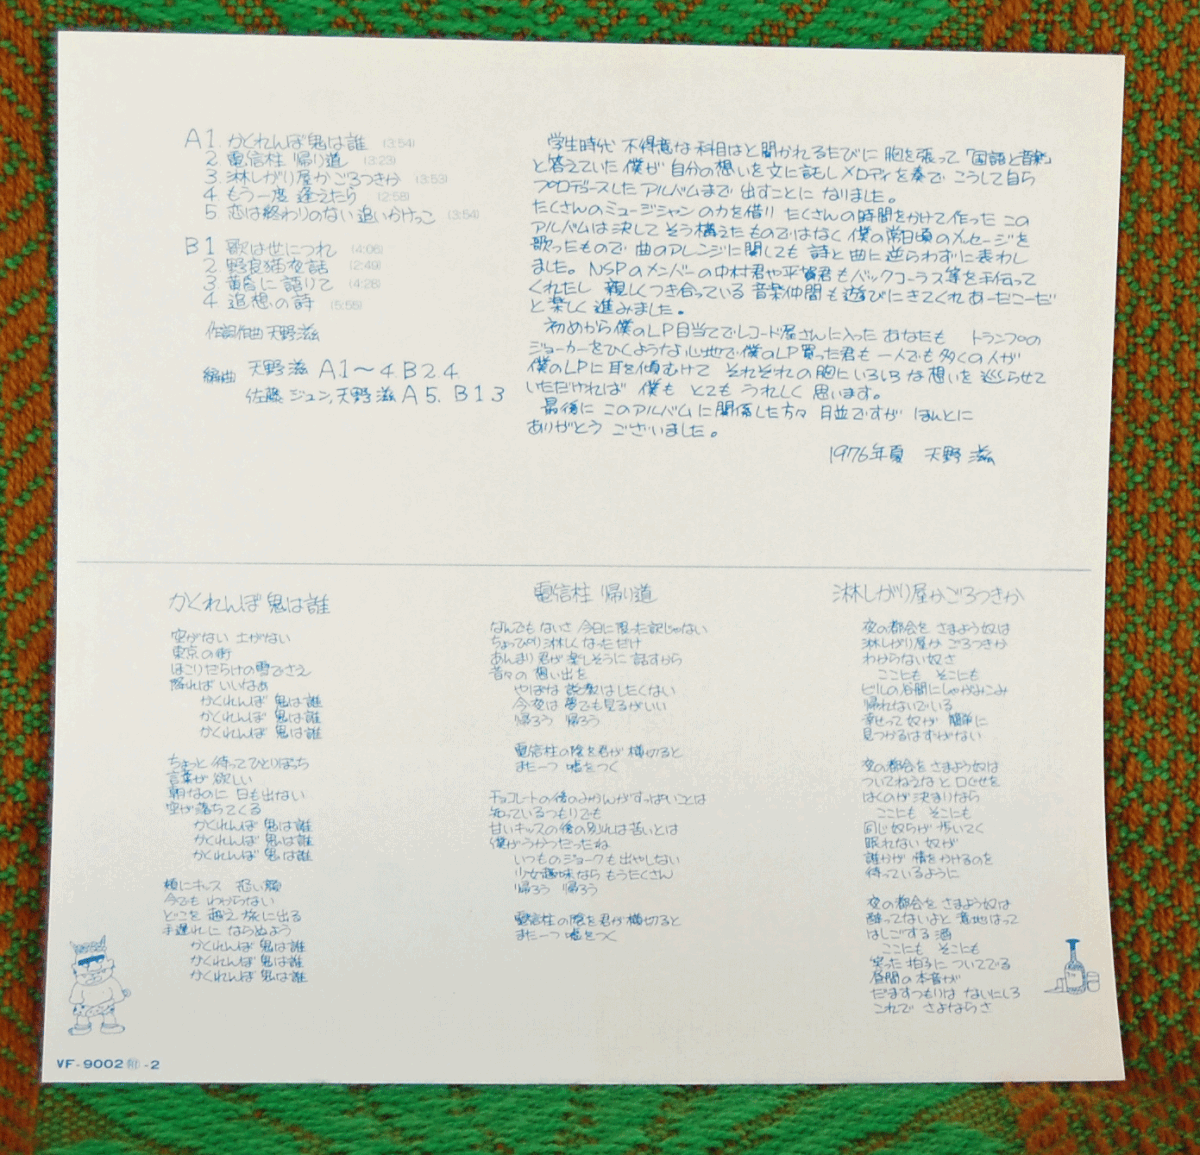 A1. かくれんぼ鬼は誰 (3:54)
2 電信柱 帰り道 (3:23)
3 淋しがり屋かごろつきか (3:53)
4 もう一度 逢えたら (2:58)
5 恋は終わりのない追いかけっこ (3:54)
B1 歌は世につれ (4:06)
2 野良猫夜話 (2:49)
3 黄昏に語りて (4:28)
4 追想の詩 (5:55)
作詞作曲 天野滋
編曲 天野滋 A1〜4 B2.4
佐藤ジュン,天野滋 A5. B1 3
学生時代 不得意な科目はと聞かれるたびに 胸を張って「国語と音楽」
と答えていた 僕が 自分の想いを文に託し メロディを奏で こうして自ら
プロデュースした アルバムまで 出すことに なりました。
たくさんのミュージシャンの力を借り たくさんの時間をかけて作った この
アルバムは決して そう構えたものではなく 僕の常日頃のメッセージを
歌ったもので 曲のアレンジに関しても 詩と曲に逆らわずに表わし
ました。NSPのメンバーの中村君や平賀君もバックコーラス等を手伝って
くれたし 親しくつき合っている 音楽仲間も遊びにきてくれ あーだこーだ
と楽しく 進みました。
初めから僕のLP目当てでレコード屋さんに入った あなたも トランプの
ジョーカーをひくような心地で僕のLP買った君も 一人でも多くの人が
僕のLPに耳を傾むけて それぞれの胸にいろいろな想いを 巡らせて
いただければ 僕も とても うれしく 思います。
最後に このアルバムに関係した方々 月並ですが ほんとに
ありがとう ございました。
1976年夏 天野 滋
かくれんぼ 鬼は誰
空がない 土がない
東京の街
ほこりだらけの雪でさえ
降ればいいなあ
かくれんぼ 鬼は誰
かくれんぼ 鬼は誰
かくれんぼ 鬼は誰
ちょっと待ってひとりぼっち
言葉が欲しい
朝なのに 日も出ない
空が落ちてくる
かくれんぼ 鬼は誰
かくれんぼ 鬼は誰
かくれんぼ 鬼は誰
頬にキッス 恐い顔
今でも わからない
どこを 越え 旅に出る
手遅れに ならぬよう
かくれんぼ 鬼は誰
かくれんぼ 鬼は誰
かくれんぼ 鬼は誰
電信柱 帰り道
なんでも ないさ 今日に限った訳じゃない
ちょっぴり淋しく なっただけ
あんまり君が楽しそうに 話すから
昔々の 想い出を
やぼな 説教はしたくない
今夜は 夢でも見るがいい
帰ろう 帰ろう
電信柱の陰を君が 横切ると
また一つ 嘘をつく
チョコレートの後のみかんがすっぱいことは
知っているつもりでも
甘いキッスの後の別れは苦いとは
僕がうかつだったね
いつものジョークも出やしない
少女趣味なら もうたくさん
帰ろう 帰ろう
電信柱の陰を君が横切ると
また一つ 嘘をつく
淋しがり屋かごろつきか
夜の都会を さまよう奴は
淋しがり屋か ごろつきか
わからない奴さ
ここにも そこにも
ビルの谷間にしゃがみこみ
帰れないでいる
幸せって奴が 簡単に
見つかるはずがない
夜の都会を さまよう奴は
ついてねえなと 口ぐせを
はくのが 決まりなら
ここにも そこにも
同じ奴らが 歩いてく
眠れない 奴が
誰かが 情をかけるのを
待っているように
夜の都会を さまよう奴は
酔ってないよと 意地はって
はしごする 酒
ここにも そこにも
笑った 拍子に ついてでる
昼間の本音が
だますつもりは ないにしろ
これで さよならさ
VF-9002 -2